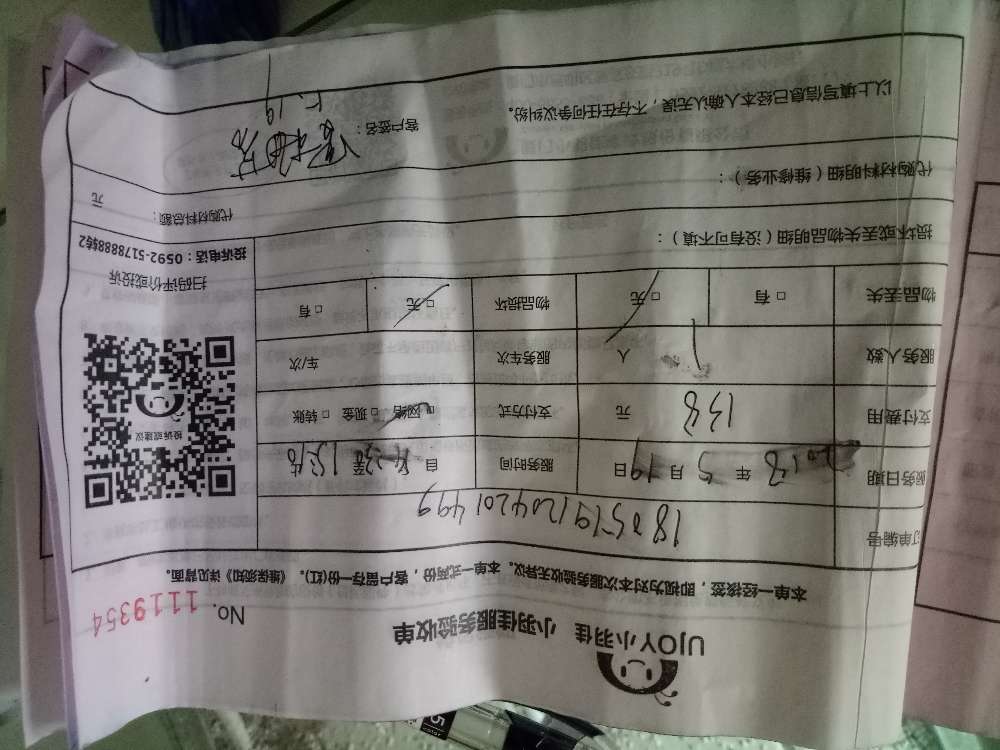 UJOY小羽佳 小羽佳服务验收单
No. 1119354
本单一经接签，即视为对本次服务验收无异议。本单一式两份，客户留存一份(红)。《维保须知》详见背面。
订单编号 1805191204201499
服务日期 2018 年 5 月 19 日 服务时间 自 至
支付费用 138 元 支付方式 □网络 □现金 □转账
服务人数 1 人 服务车次 车/次
物品丢失 □有 □无 物品损坏 □无 □有
投诉或建议
扫码评价或投诉
投诉电话：0592-5178888转2
损坏或丢失物品明细（没有可不填）：
代购材料明细（维修业务）：
代购材料总额： 元
以上填写信息已经本人确认无误，不存在任何争议纠纷。
客户签名：
5.19